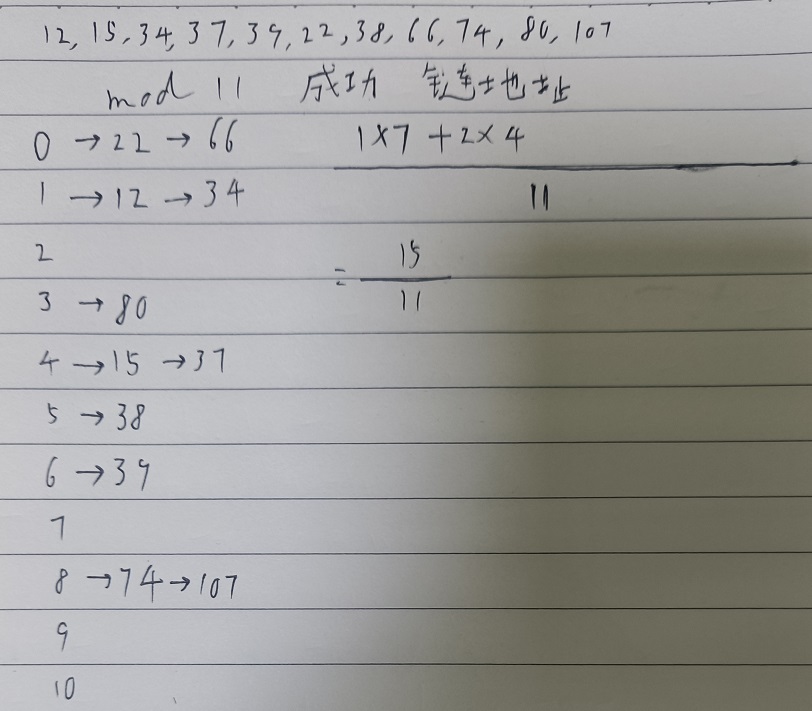 12, 15, 34, 37, 39, 22, 38, 66, 74, 80, 107
mod 11 成功 链地址
0 → 22 → 66 1×7 + 2×4
1 → 12 → 34 11
2 15
= 
3 → 80 11
4 → 15 → 37
5 → 38
6 → 39
7
8 → 74 → 107
9
10